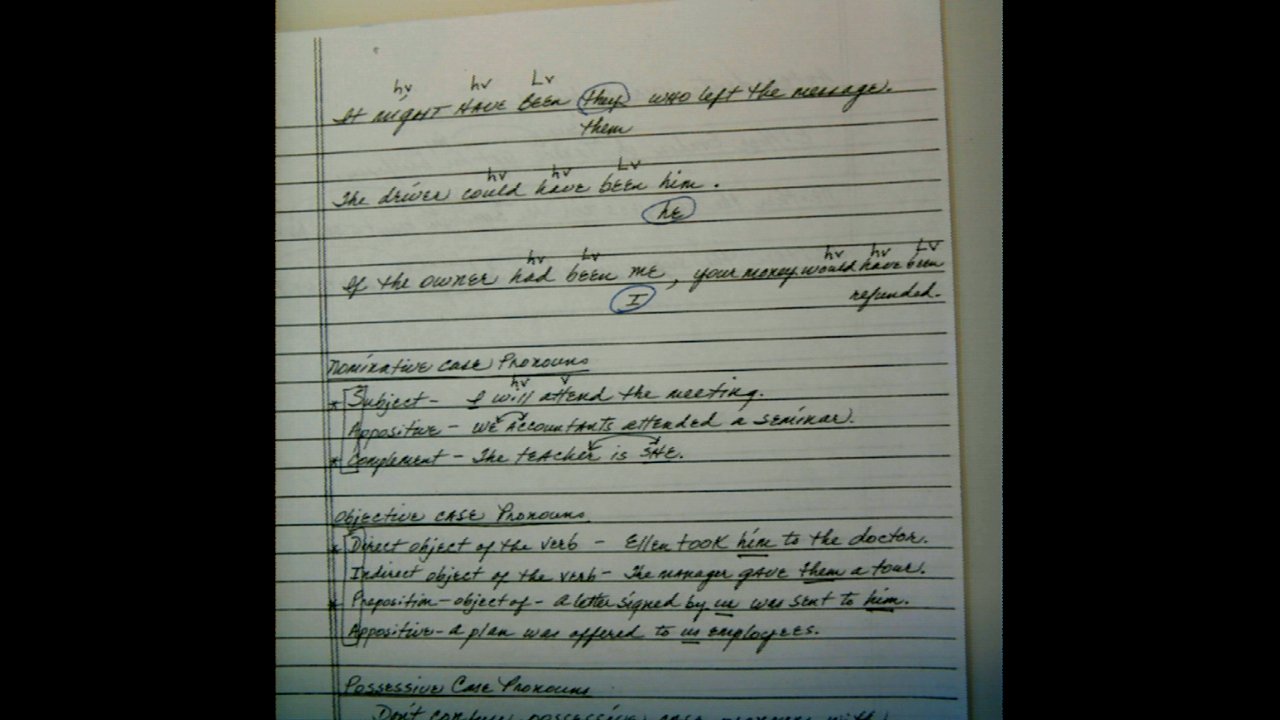 hv hv Lv
It might HAVE BEEN they who left the message.
them
hv hv Lv
The driver could have been him.
he
hv Lv hv hv LV
If the owner had been me, your money would have been
I
refunded.
Nominative case Pronouns
hv v
* Subject - I will attend the meeting.
Appositive - we Accountants attended a seminar.
* Complement - The teacher is SHE.
Objective case Pronouns
* Direct object of the verb - Ellen took him to the doctor.
Indirect object of the verb - The manager gave them a tour.
* Preposition - object of - a letter signed by us was sent to him.
Appositive - a plan was offered to us employees.
Possessive Case Pronouns
Don't confuse possessive case pronouns with